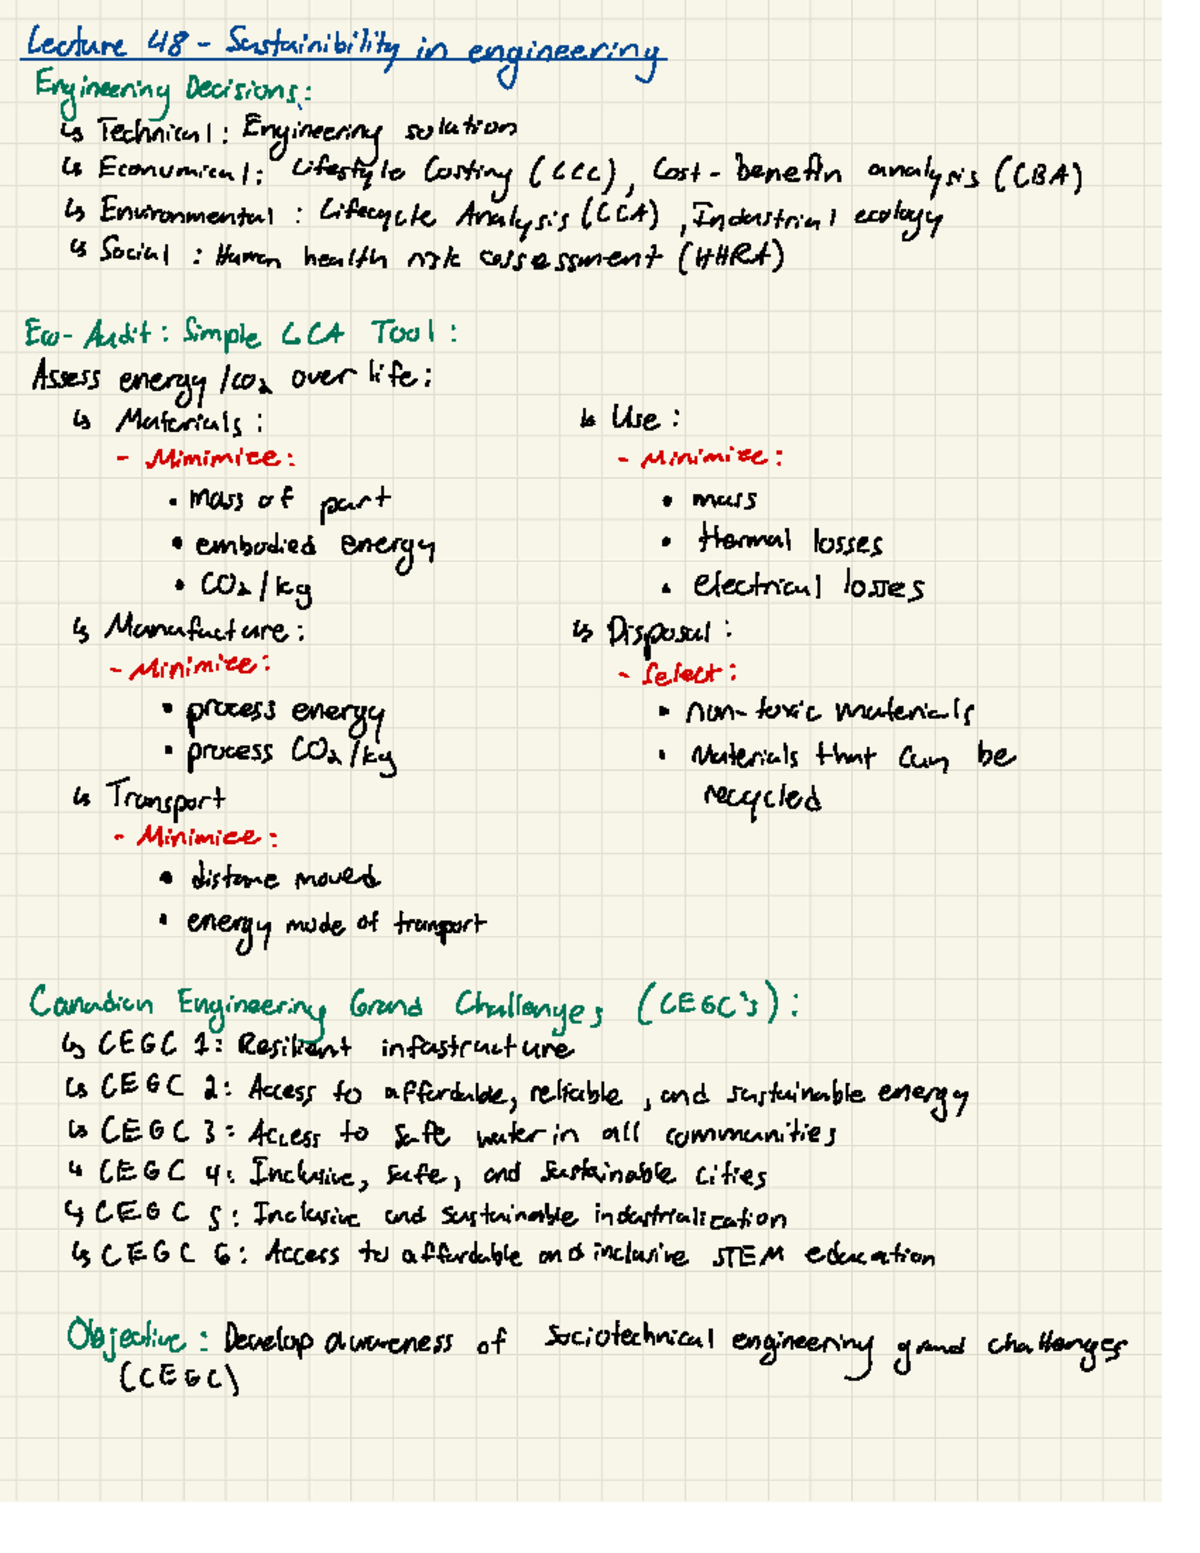 Lecture 48 - Sustainibility in engineering
Engineering Decisions:
↳ Technical: Engineering solution
↳ Economical: Lifestyle Costing (LCC), Cost-benefit analysis (CBA)
↳ Environmental: Lifecycle Analysis (LCA), Industrial ecology
↳ Social: Human health risk assessment (HHRA)
Eco-Audit: Simple LCA Tool:
Assess energy/CO₂ over life:
↳ Materials:
- Minimize:
• mass of part
• embodied energy
• CO₂/kg
↳ Manufacture:
- Minimize:
• process energy
• process CO₂/kg
↳ Transport
- Minimize:
• distance moved
• energy mode of transport
↳ Use:
- Minimize:
• mass
• thermal losses
• electrical losses
↳ Disposal:
- Select:
• non-toxic materials
• Materials that can be
recycled
Canadian Engineering Grand Challenges (CEGC's):
↳ CEGC 1: Resilient infastructure
↳ CEGC 2: Access to affordable, reliable, and sustainable energy
↳ CEGC 3: Access to safe water in all communities
↳ CEGC 4: Inclusive, safe, and sustainable cities
↳ CEGC 5: Inclusive and sustainable industrialization
↳ CEGC 6: Access to affordable and inclusive STEM education
Objective: Develop awareness of sociotechnical engineering grand challenges
(CEGC)